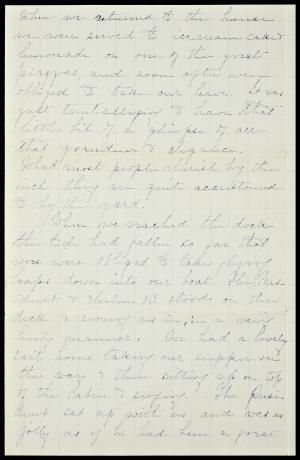 When we returned to the house
we were served to ice cream cake &
lemonade on one of the great
piazzas, and soon after were
obliged to take our leave. It was
just tantalizing to have that
little bit of a glimpse of all
that grandeur & elegance.
What most people cherish by the
inch they are quite accustomed
to by the yard.
When we reached the dock
the tide had fallen so far that
we were obliged to take flying
leaps down into our boat. The Pres
ident & B. stood on the
dock & swung us in, in a very
lively manner. We had a lovely
sail home taking our supper on
the way & then sitting up on top
of the cabin & singing. The Presi
dent sat up with us and was as
jolly as if he had been a great